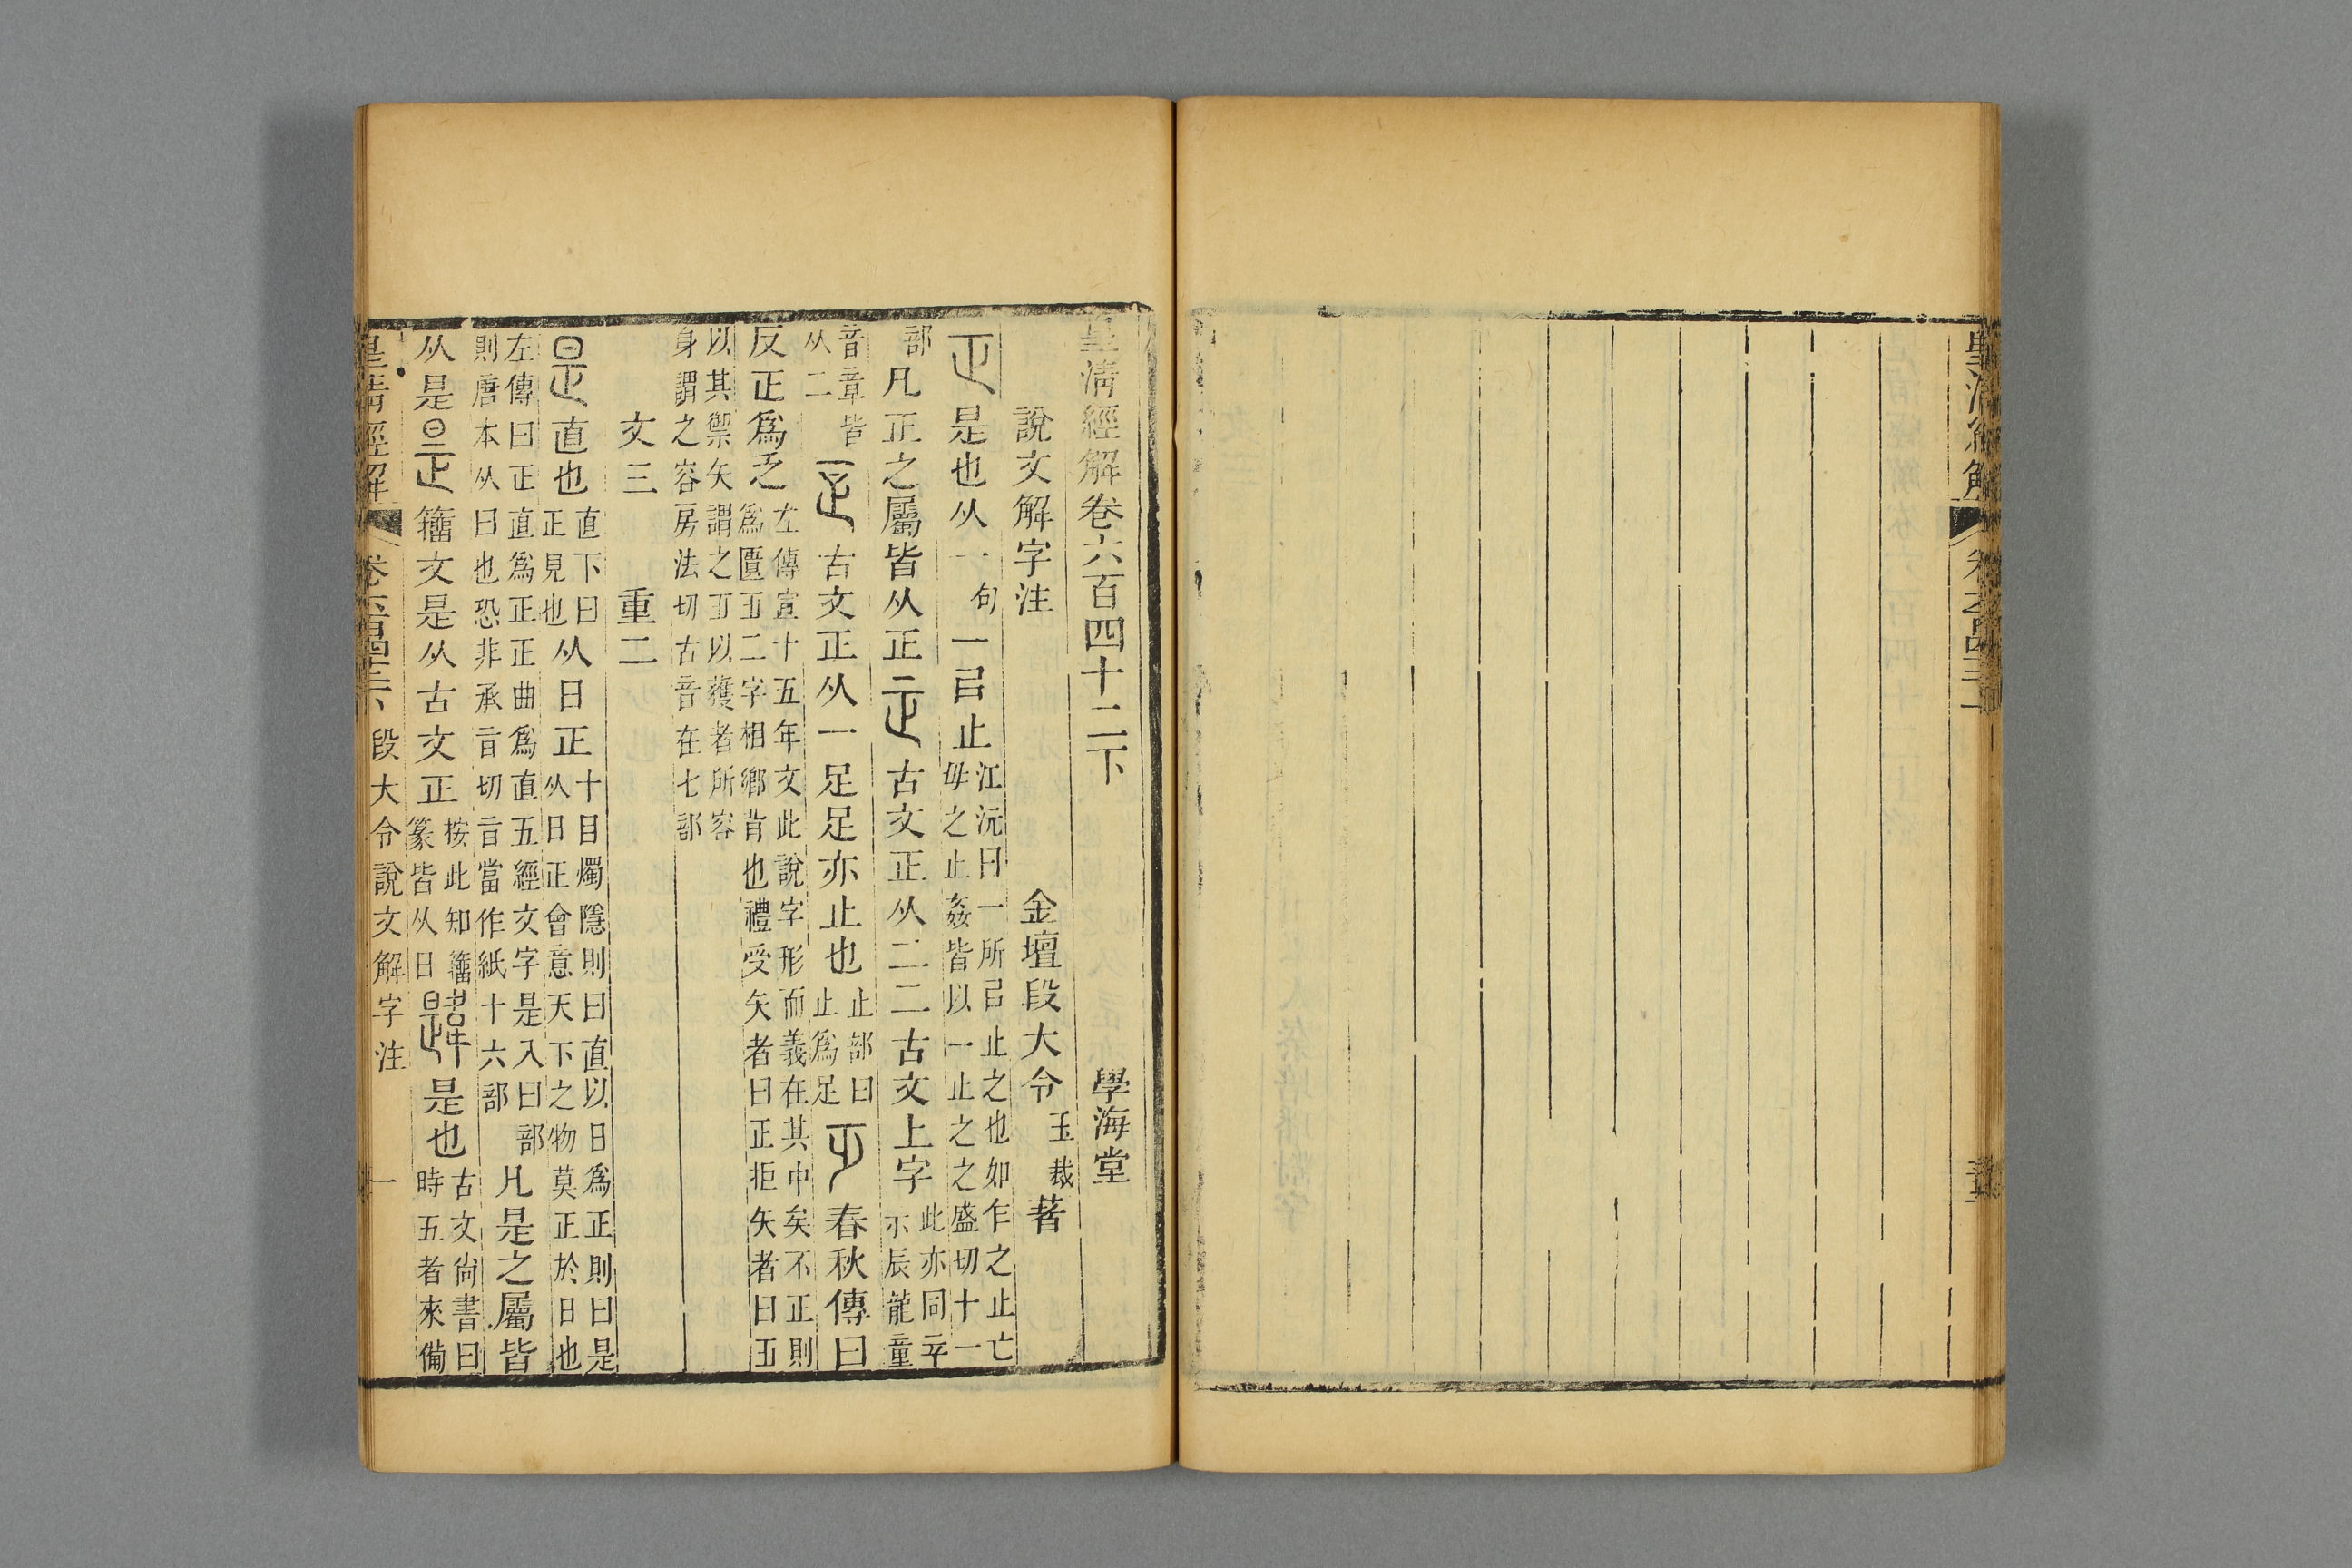 皇清經解
皇清經解卷六百四十二下 學海堂
說文解字注 金壇段大令玉裁著
正是也从一句一㠯止江沅曰一所㠯止之也如乍之止亡毋之止姦皆以一止之之盛切十一
部凡正之屬皆从正𤴓古文正从二二古文上字此亦同䇂示辰龍童
音章皆从二𤴔古文正从一足足亦止也止部曰止爲足乏春秋傳曰
反正爲乏左傳宣十五年文此說字形而義在其中矣不正則爲匱乏二字相鄉背也禮受矢者曰正拒矢者曰乏
以其禦矢謂之乏以獲者所容身謂之容房法切古音在七部
文三 重二
是直也直下曰正見也从日正十目燭隱則曰直以日爲正則曰是从日正會意天下之物莫正於日也
左傳曰正直爲正正曲爲直五經文字是入曰部則唐本从曰也恐非承旨切旨當作紙十六部凡是之屬皆
从是昰籒文是从古文正按此知籒篆皆从日韙是也古文尙書曰時五者來備
皇清經解 卷六百四十二下 段大令說文解字注 一